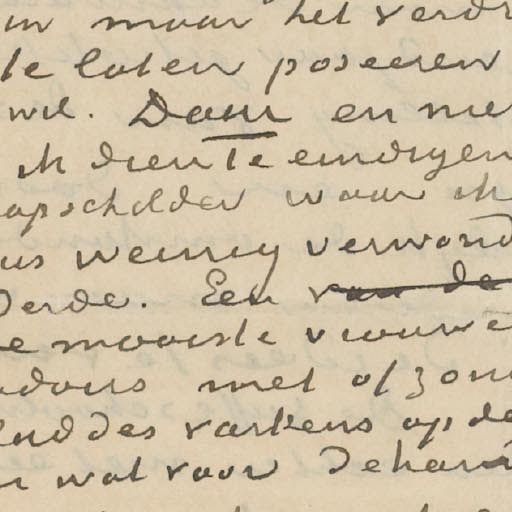 maar het verdr
te laten poseeren
wil. Daar en nie
ik dien te eindigen
apschilder waar ik
us weinig verwond
derde. Een van de
e mooiste vrouwe
met of zon
kuddes varkens op de
wat voor Dehari